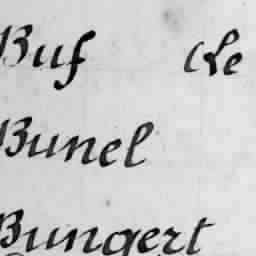 Buf de
Bunel
Bungert